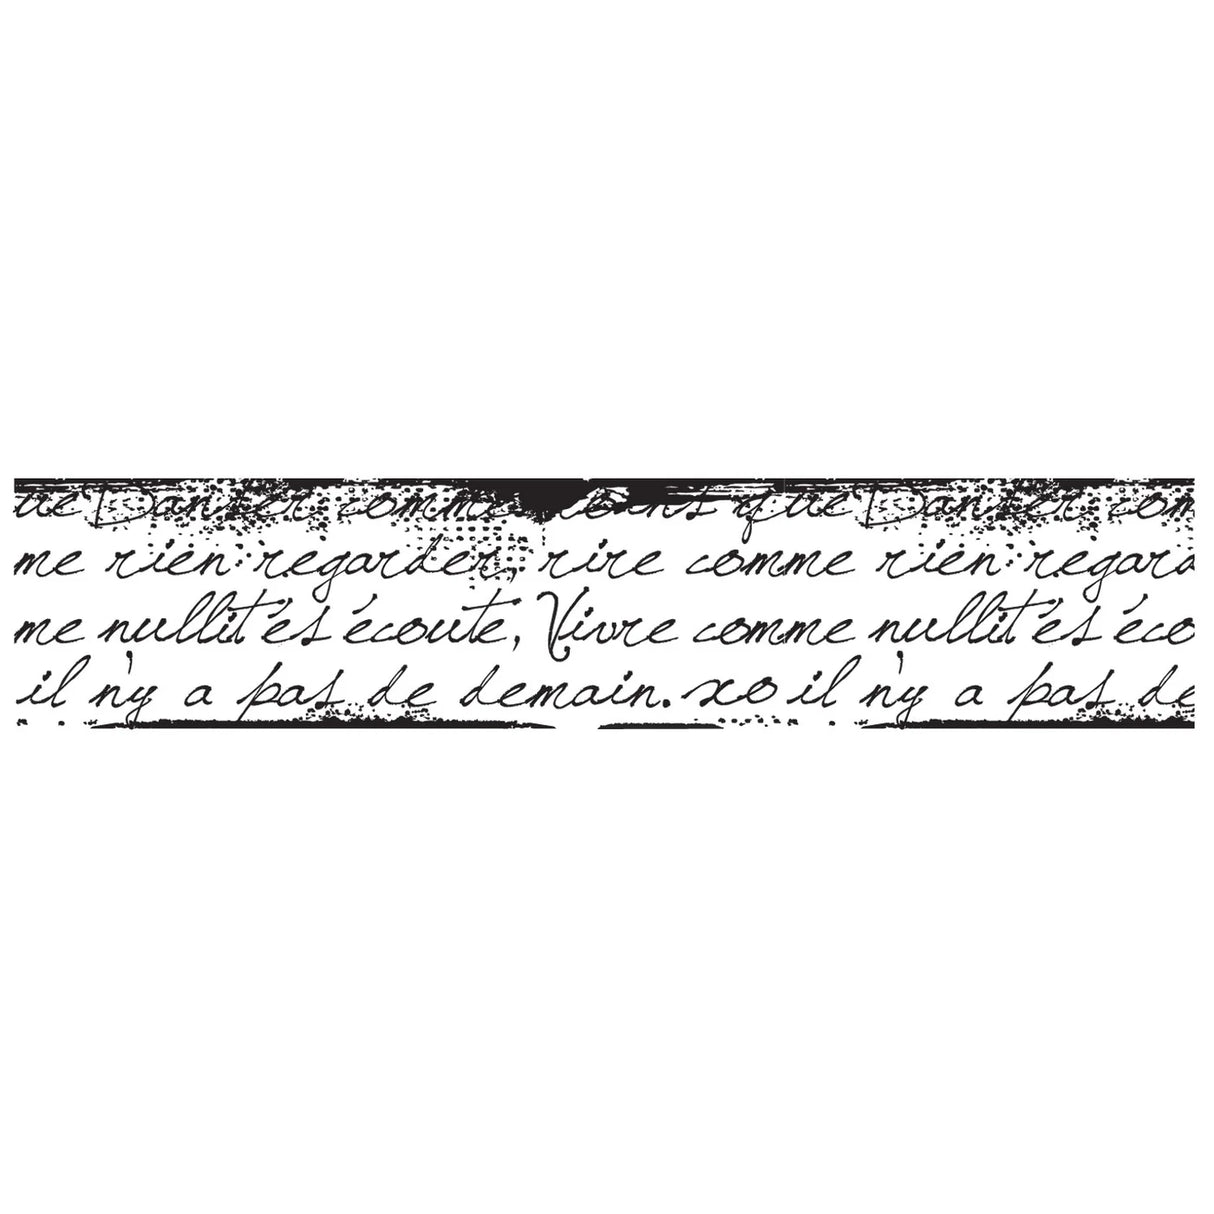 ue Danser comme que Danser com
me rien regarder, rire comme rien regard
me nullités écoute, Vivre comme nullités éco
il n'y a pas de demain. xo il n'y a pas de